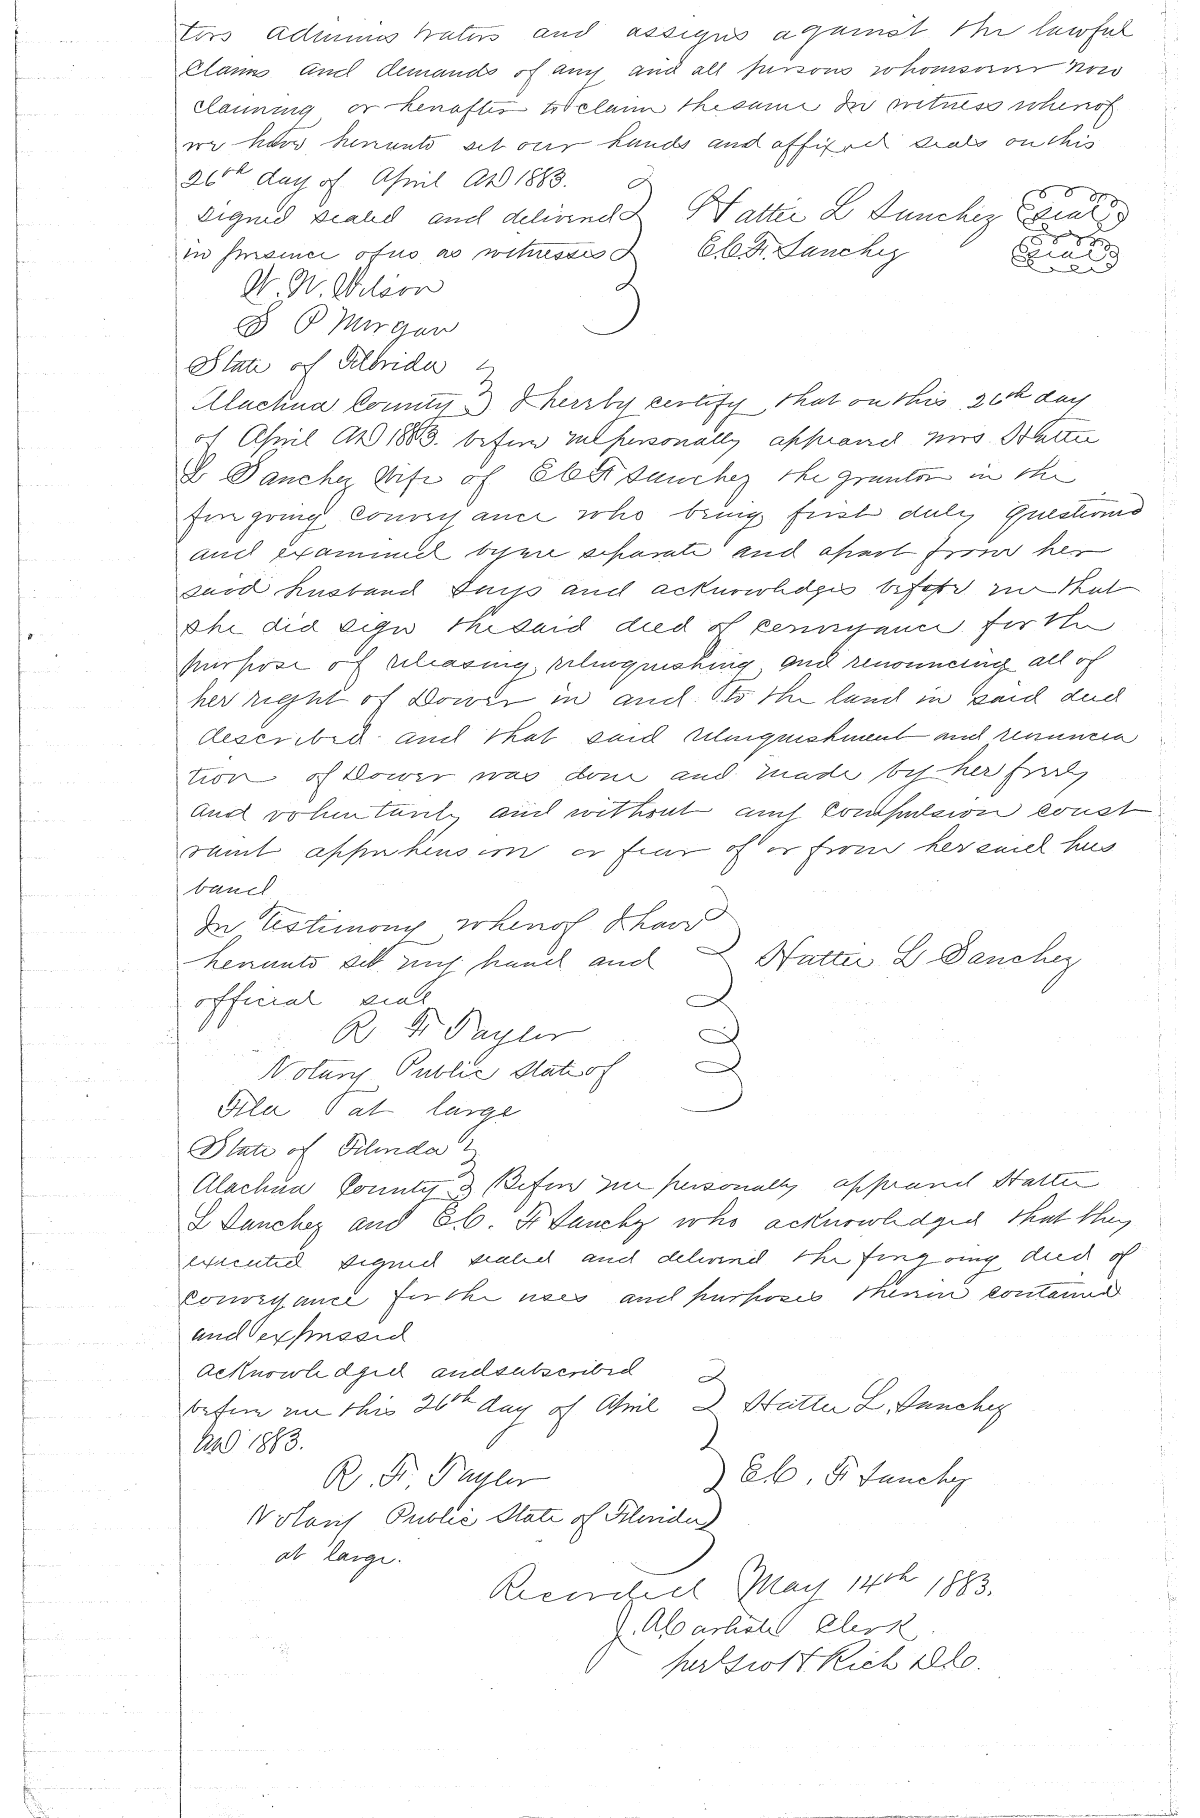 tors adminis trators and assigns against the lawful
Claims and demands of any and all persons whomsoever now
claiming or hereafter to claim the same In witness whereof
we have hereunto set our hands and affixed seals on this
26th day of April AD 1883.
signed sealed and delivered Hattie L Sanchez Seal
in presence of us as witnesses E.C.F. Sanchez Seal
W. W. Wilson
S P Morgan
State of Florida
Alachua County I hereby certify that on this 26th day
of April AD 1883. before me personally appeared Mrs Hattie
L Sanchez Wife of E C F Sanchez the grantor in the
foregoing conveyance who being first duly questioned
and examined by me separate and apart from her
said husband says and acknowledges before me that
she did sign the said deed of conveyance for the
purpose of releasing relinquishing and renouncing all of
her right of Dower in and to the land in said deed
described and that said relinquishment and renuncia
tion of Dower was done and made by her freely
and voluntarily and without any compulsion const
raint apprehension or fear of or from her said hus
band
In Testimony whereof I have
hereunto set my hand and Hattie L Sanchez
official seal
R F Tayler
Notary Public State of
Fla at large
State of Florida
Alachua County Before me personally appeared Hattie
L Sanchez and E C. F Sanchez who acknowledged that they
executed signed sealed and delivered the foregoing deed of
conveyance for the uses and purposes therein contained
and expressed
acknowledged and subscribed
before me this 26th day of April Hattie L. Sanchez
AD 1883.
R. F. Tayler E C. F Sanchez
Notary Public State of Florida
at large.
Recorded May 14th 1883.
J. A. Carlisle Clerk
per Rich D.C.